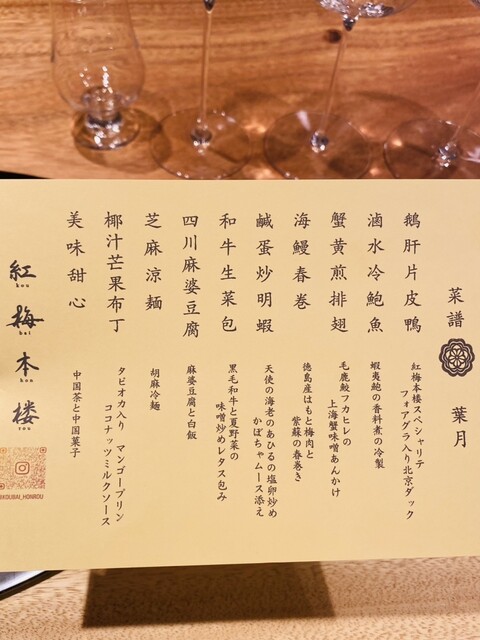 菜譜 葉月
鵝肝片皮鴨
紅梅本楼スペシャリテ
フォアグラ入り北京ダック
滷水冷鮑魚
蝦夷鮑の香料煮の冷製
蟹黄煎排翅
毛鹿鮫フカヒレの
上海蟹味噌あんかけ
海鰻春巻
徳島産はもと梅肉と
紫蘇の春巻き
鹹蛋炒明蝦
天使の海老のあひるの塩卵炒め
かぼちゃムース添え
和牛生菜包
黒毛和牛と夏野菜の
味噌炒めレタス包み
四川麻婆豆腐
麻婆豆腐と白飯
芝麻涼麺
胡麻冷麺
椰汁芒果布丁
タピオカ入り マンゴープリン
ココナッツミルクソース
美味甜心
中国茶と中国菓子
紅梅本楼
kou
bai
hon
rou
@KOUBAI_HONROU